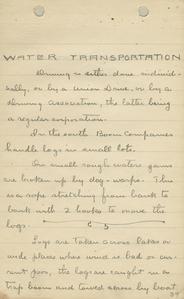 WATER TRANSPORTATION
Driving is either done individ-
ually, or by a Union Drive, or by a
Driving Association, the latter being
a regular corporation.
In the south Boom Companies
handle logs in small lots.
On small rough waters jams
are broken up by dog-warps. This
is a rope stretching from bank to
bank with 2 hooks to move the
logs.
Logs are taken across lakes or
wide places where wind is bad or cur-
rent poor, the logs are caught in a
trap boom and towed across by boat.